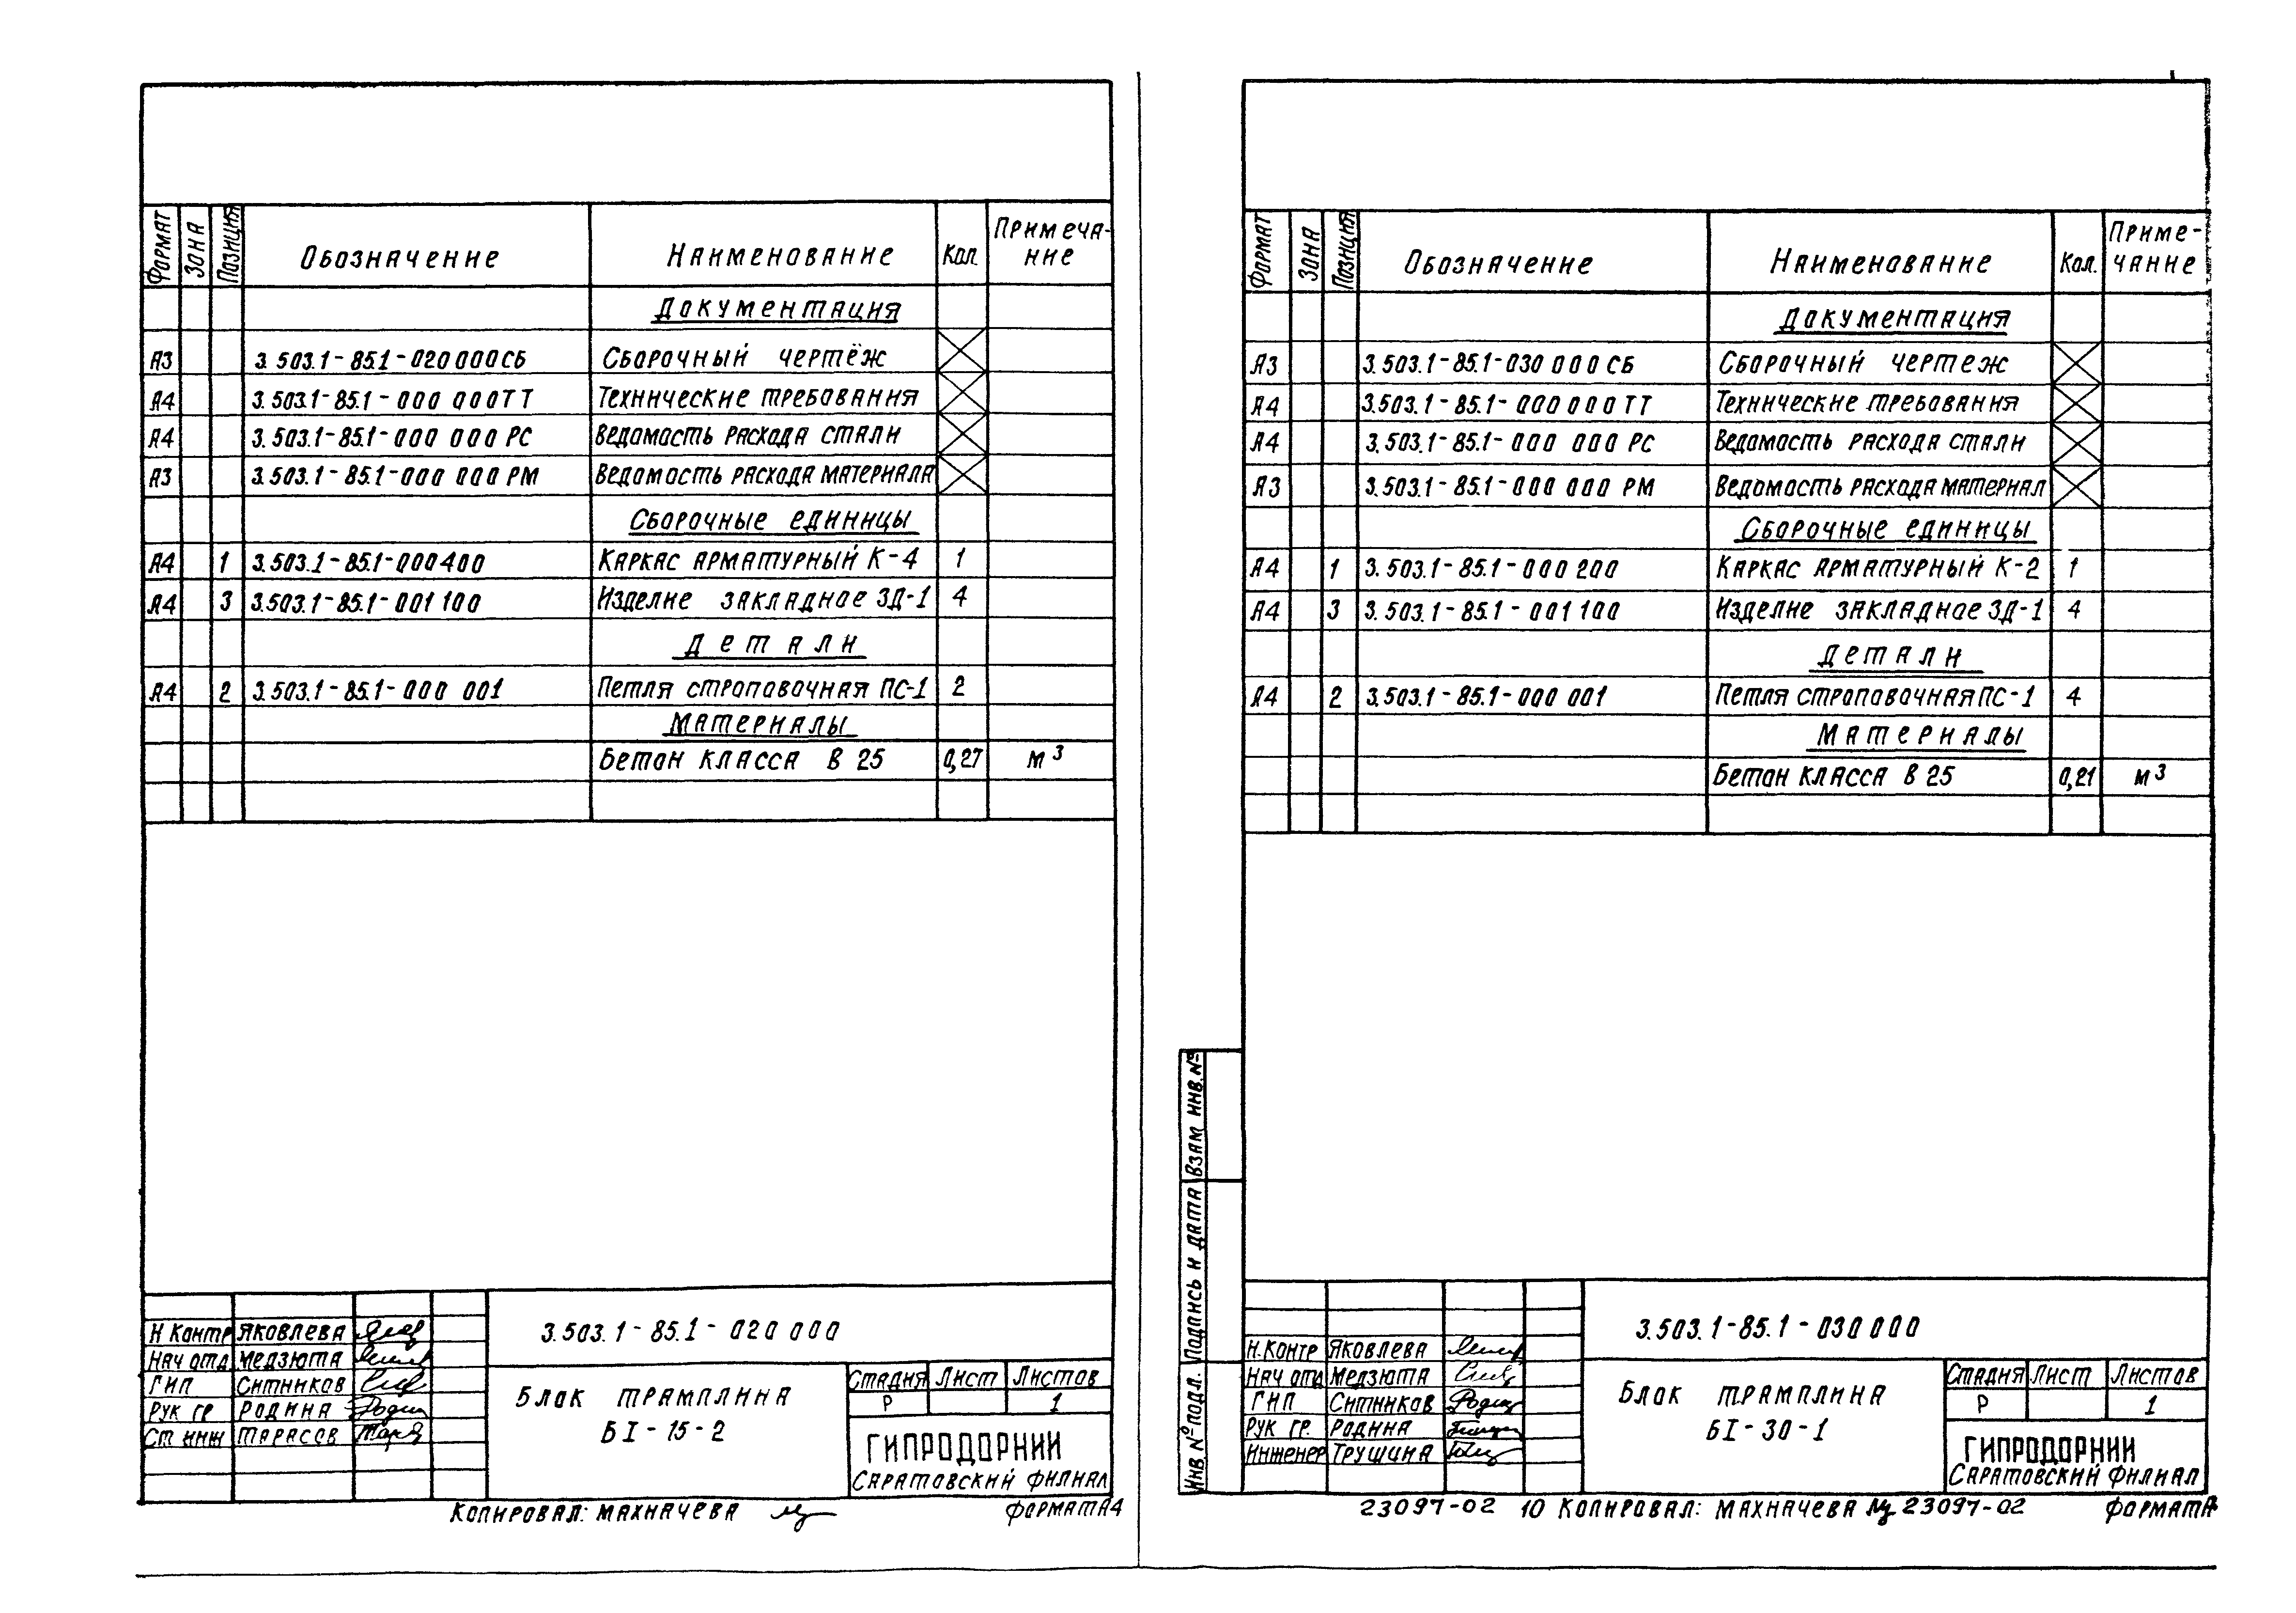 Формат Зона Позиция Обозначение Наименование Кол. Примеча-
ние
Документация
А3 3.503.1-85.1-020 000СБ Сборочный чертёж
А4 3.503.1-85.1-000 000ТТ Технические требования
А4 3.503.1-85.1-000 000 РС Ведомость расхода стали
А3 3.503.1-85.1-000 000 РМ Ведомость расхода материала
Сборочные единицы
А4 1 3.503.1-85.1-000400 Каркас арматурный К-4 1
А4 3 3.503.1-85.1-001 100 Изделие закладное ЗД-1 4
Детали
А4 2 3.503.1-85.1-000 001 Петля строповочная ПС-1 2
Материалы
Бетон класса В 25 0,27 м³
Н Контр Яковлева
Нач отд Медзюта
ГИП Ситников
Рук гр Родина
Ст инж Тарасов
3.503.1-85.1-020 000
Блок трамплина
БI-15-2
Стадия Лист Листов
Р 1
ГИПРОДОРНИИ
Саратовский филиал
Копировал: Махначева
Формат А4
Формат Зона Позиция Обозначение Наименование Кол. Приме-
чание
Документация
А3 3.503.1-85.1-030 000 СБ Сборочный чертеж
А4 3.503.1-85.1-000 000 ТТ Технические требования
А4 3.503.1-85.1-000 000 РС Ведомость расхода стали
А3 3.503.1-85.1-000 000 РМ Ведомость расхода материал
Сборочные единицы
А4 1 3.503.1-85.1-000 200 Каркас арматурный К-2 1
А4 3 3.503.1-85.1-001 100 Изделие закладное ЗД-1 4
Детали
А4 2 3.503.1-85.1-000 001 Петля строповочная ПС-1 4
Материалы
Бетон класса В 25 0,21 м³
Инв. № подл. Подпись и дата Взам инв. №
Н.Контр Яковлева
Нач отд Медзюта
ГИП Ситников
Рук гр. Родина
Инженер Трущина
3.503.1-85.1-030 000
Блок трамплина
БI-30-1
Стадия Лист Листов
Р 1
ГИПРОДОРНИИ
Саратовский филиал
23097-02 10 Копировал: Махначева 23097-02
Формат А